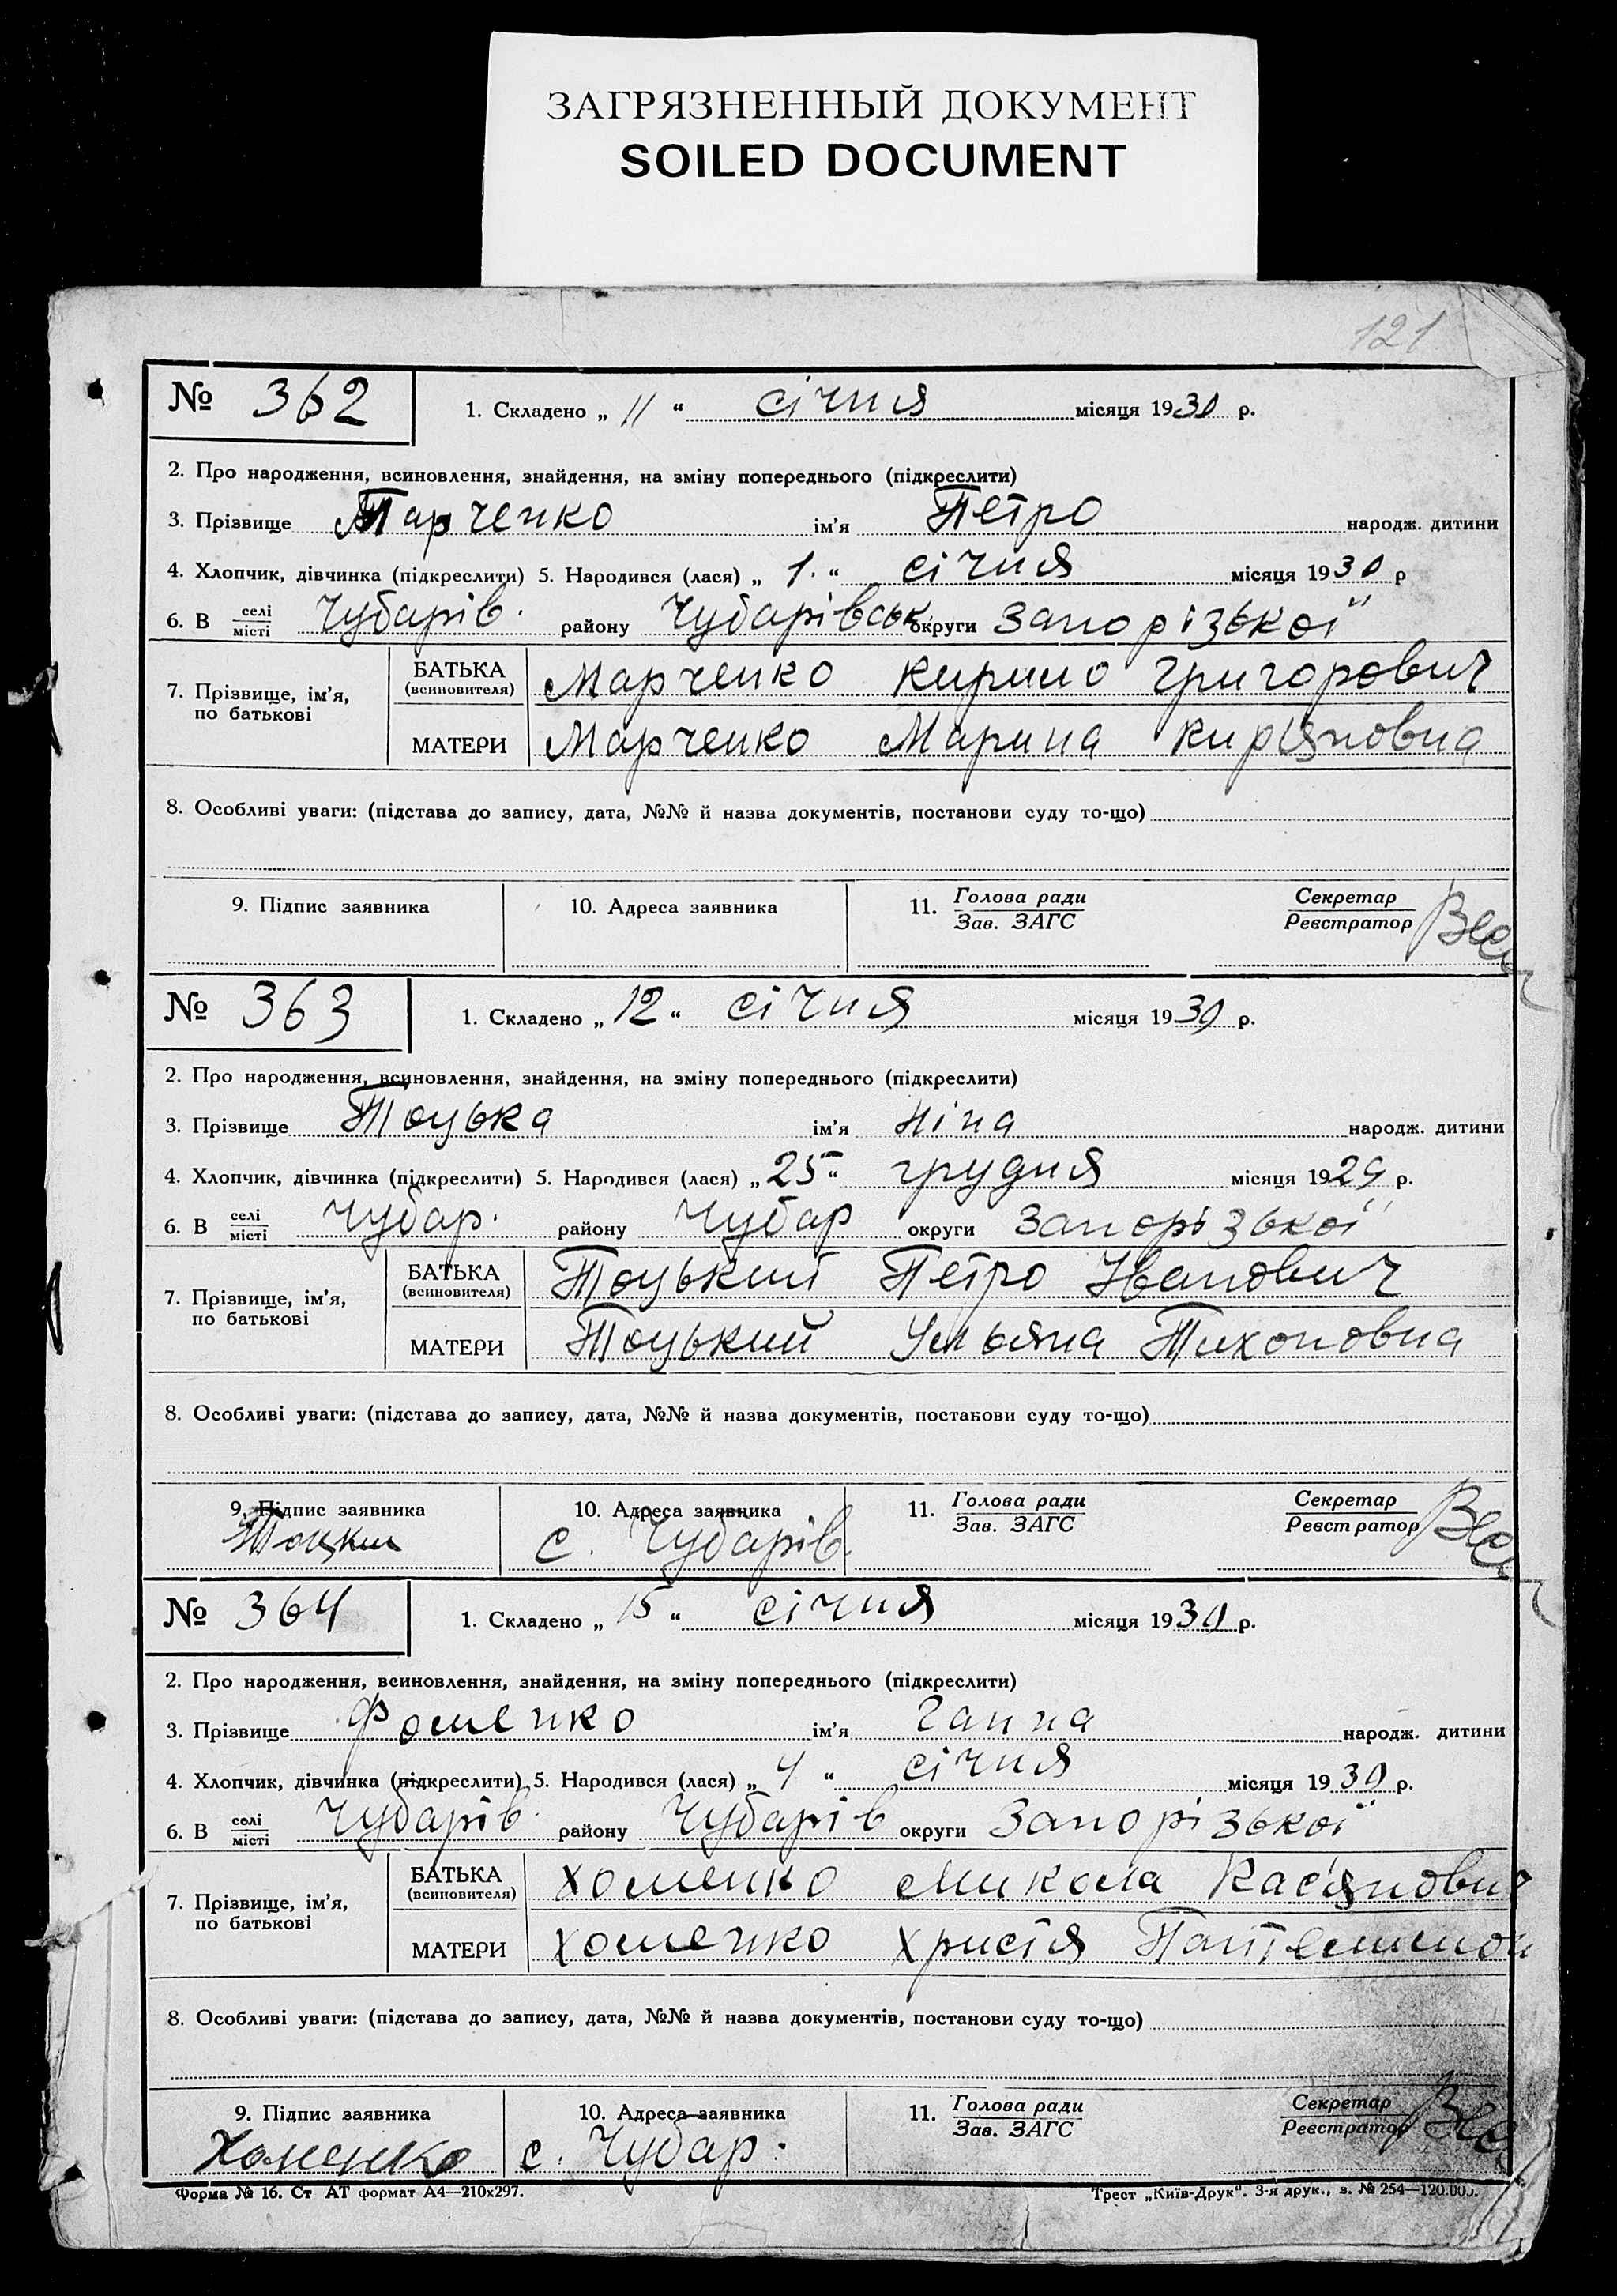 ЗАГРЯЗНЕННЫЙ ДОКУМЕНТ
SOILED DOCUMENT
121
№ 362 1. Складено „ 11 “ січня місяця 1930 р.
2. Про народження, всиновлення, знайдення, на зміну попереднього (підкреслити)
3. Прізвище Марченко ім'я Петро народж. дитини
4. Хлопчик, дівчинка (підкреслити) 5. Народився (лася) „ 1. “ січня місяця 1930 р
6. В селі/місті Чубарів. району Чубарівськ. округи Запорізької
7. Прізвище, ім'я, по батькові
БАТЬКА (всиновителя) Марченко Кирило Григорович
МАТЕРИ Марченко Марина Кирияновна
8. Особливі уваги: (підстава до запису, дата, №№ й назва документів, постанови суду то-що)
9. Підпис заявника 10. Адреса заявника 11. Голова ради/Зав. ЗАГС Секретар/Реєстратор
№ 363 1. Складено „ 12 “ січня місяця 1930 р.
2. Про народження, всиновлення, знайдення, на зміну попереднього (підкреслити)
3. Прізвище Тоцька ім'я Ніна народж. дитини
4. Хлопчик, дівчинка (підкреслити) 5. Народився (лася) „ 25 “ грудня місяця 1929 р.
6. В селі/місті Чубар. району Чубар округи Запорізької
7. Прізвище, ім'я, по батькові
БАТЬКА (всиновителя) Тоцький Петро Іванович
МАТЕРИ Тоцький Ульяна Тихоновна
8. Особливі уваги: (підстава до запису, дата, №№ й назва документів, постанови суду то-що)
9. Підпис заявника 10. Адреса заявника 11. Голова ради/Зав. ЗАГС Секретар/Реєстратор
с. Чубарів.
№ 364 1. Складено „ 15 “ січня місяця 1930 р.
2. Про народження, всиновлення, знайдення, на зміну попереднього (підкреслити)
3. Прізвище Фоменко ім'я Ганна народж. дитини
4. Хлопчик, дівчинка (підкреслити) 5. Народився (лася) „ 4 “ січня місяця 1930 р.
6. В селі/місті Чубарів. району Чубарів округи Запорізької
7. Прізвище, ім'я, по батькові
БАТЬКА (всиновителя) Хоменко Микола Кас'янович
МАТЕРИ Хоменко Христя
8. Особливі уваги: (підстава до запису, дата, №№ й назва документів, постанови суду то-що)
9. Підпис заявника 10. Адреса заявника 11. Голова ради/Зав. ЗАГС Секретар/Реєстратор
Хоменко с. Чубар.
Форма № 16. Ст АТ формат А4—210х297. Трест „Київ-Друк“. 3-я друк., з. № 254—120.000.